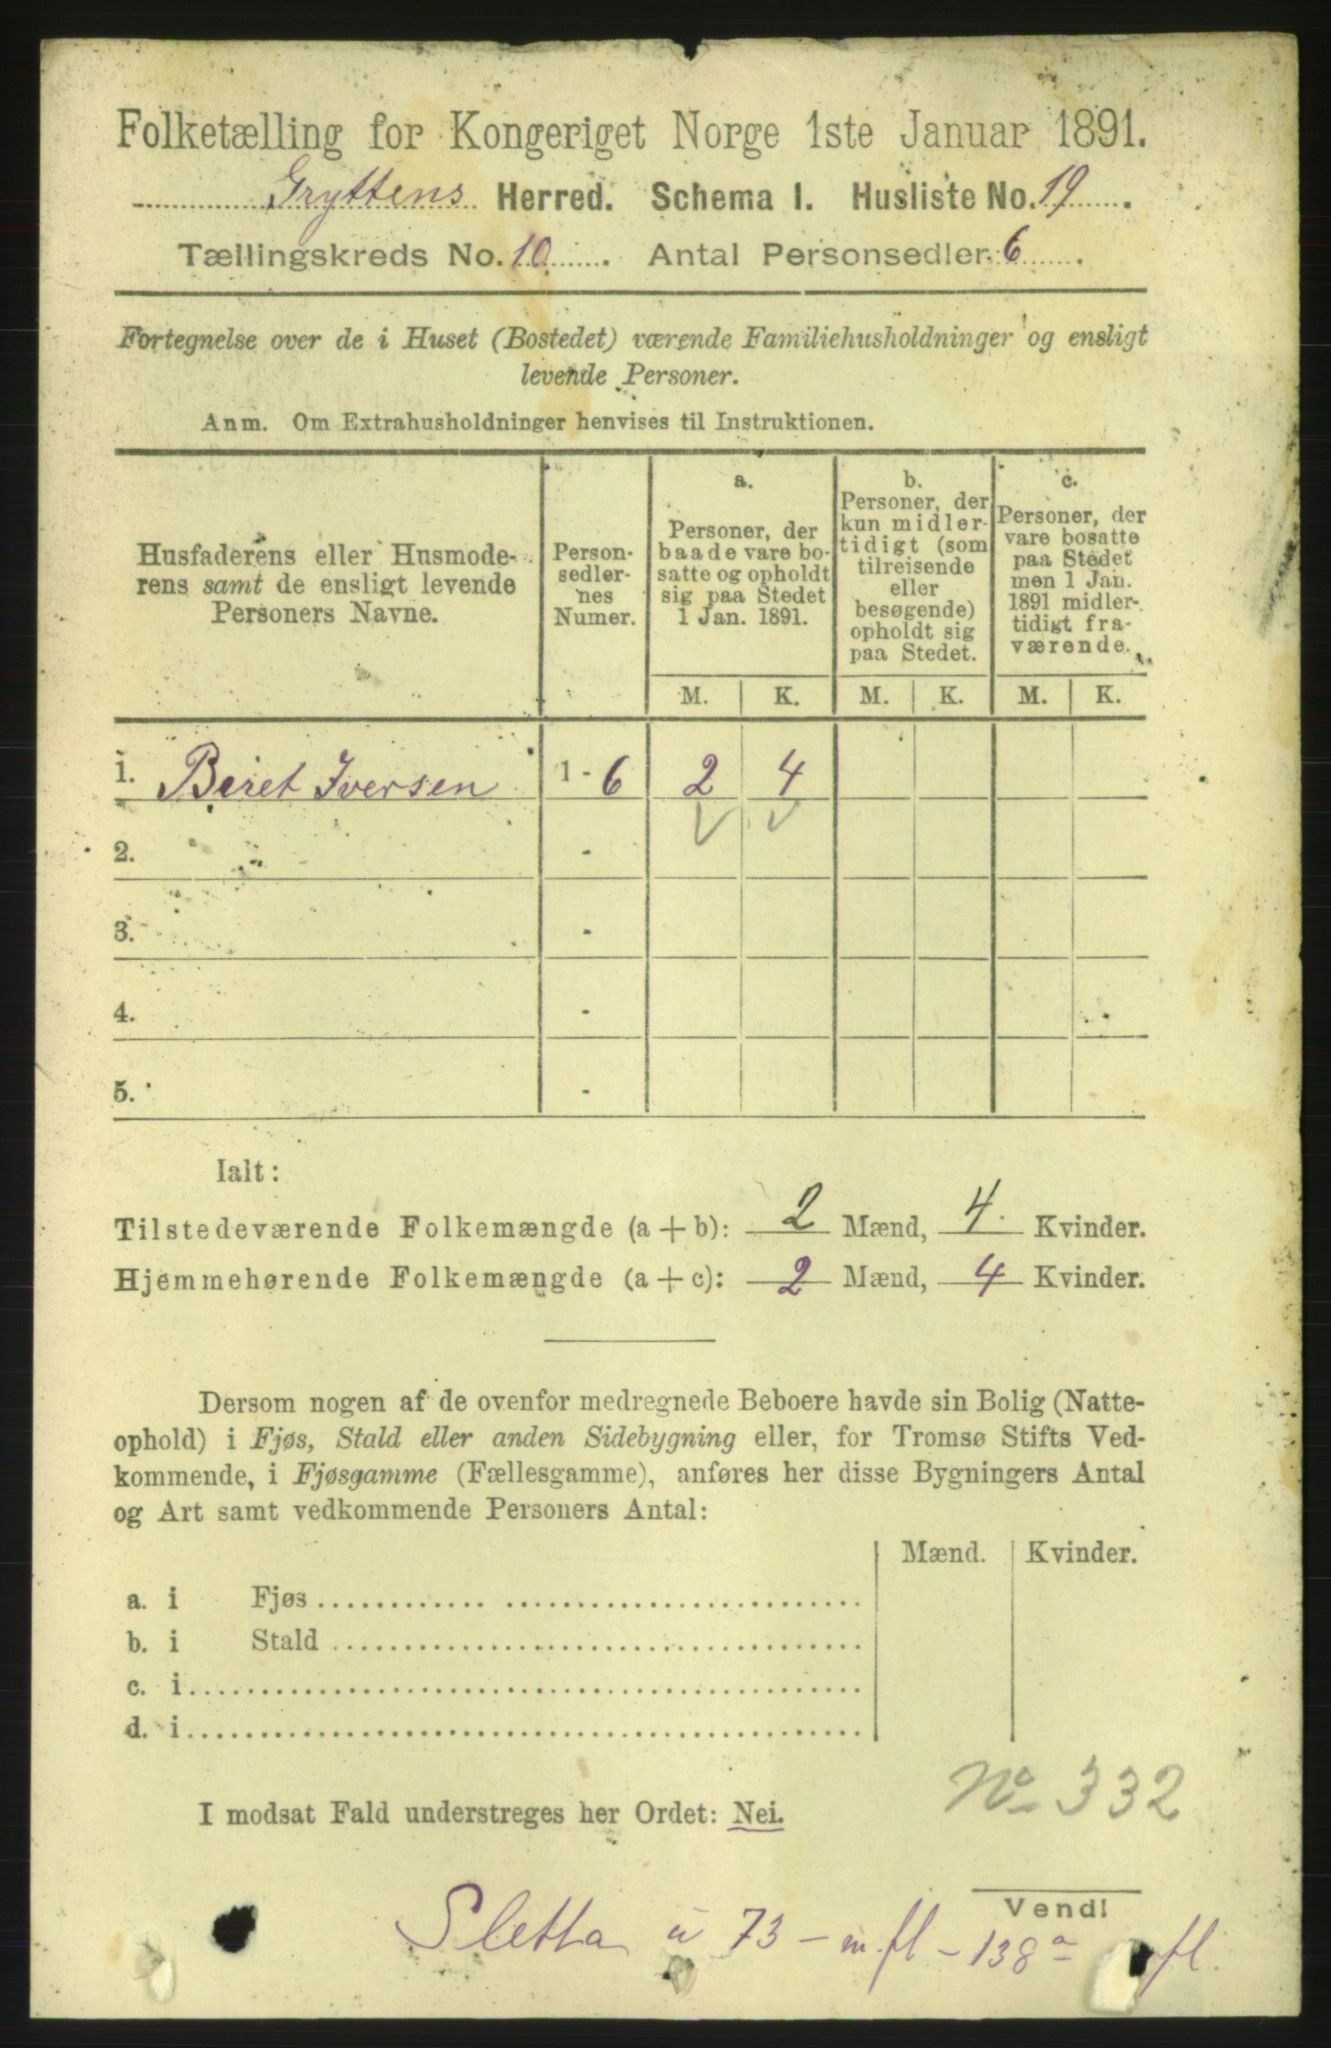 Folketælling for Kongeriget Norge 1ste Januar 1891.
Gryttens Herred. Schema I. Husliste No. 19.
Tællingskreds No. 10. Antal Personsedler 6.
Fortegnelse over de i Huset (Bostedet) værende Familiehusholdninger og ensligt
levende Personer.
Anm. Om Extrahusholdninger henvises til Instruktionen.
Husfaderens eller Husmode-
rens samt de ensligt levende
Personers Navne.
Person-
sedler-
nes
Numer.
a.
Personer, der
baade vare bo-
satte og opholdt
sig paa Stedet
1 Jan. 1891.
b.
Personer, der
kun midler-
tidigt (som
tilreisende
eller
besøgende)
opholdt sig
paa Stedet.
c.
Personer, der
vare bosatte
paa Stedet
men 1 Jan.
1891 midler-
tidigt fra-
værende.
M. K. M. K. M. K.
1. Beret Iversen 1 - 6 2 4
2. -
3. -
4. -
5. -
Ialt:
Tilstedeværende Folkemængde (a + b): 2 Mænd, 4 Kvinder.
Hjemmehørende Folkemængde (a + c): 2 Mænd, 4 Kvinder.
Dersom nogen af de ovenfor medregnede Beboere havde sin Bolig (Natte-
ophold) i Fjøs, Stald eller anden Sidebygning eller, for Tromsø Stifts Ved-
kommende, i Fjøsgamme (Fællesgamme), anføres her disse Bygningers Antal
og Art samt vedkommende Personers Antal:
Mænd. Kvinder.
a. i Fjøs
b. i Stald
c. i
d. i
No 332
I modsat Fald understreges her Ordet: Nei.
Vend!
Sletta u 73 - m. fl - 138a fl.